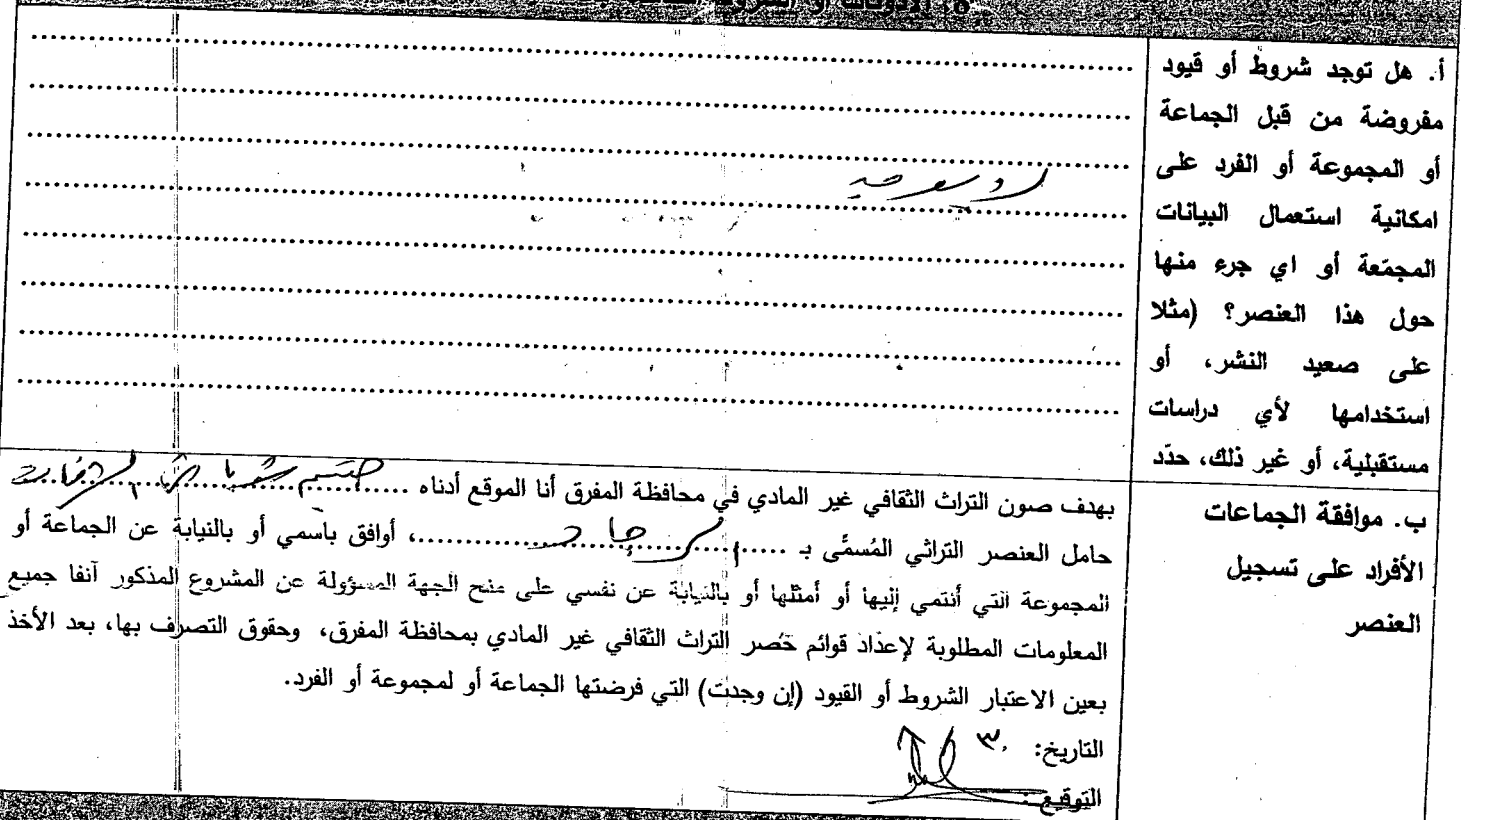 أ. هل توجد شروط أو قيود
مفروضة من قبل الجماعة
أو المجموعة أو الفرد على
امكانية استعمال البيانات
المجمّعة أو اي جرء منها
حول هذا العنصر؟ (مثلا
على صعيد النشر، أو
استخدامها لأي دراسات
مستقبلية، أو غير ذلك، حدّد
لا يوجد
ب. موافقة الجماعات
الأفراد على تسجيل
العنصر
بهدف صون التراث الثقافي غير المادي في محافظة المفرق أنا الموقع أدناه ........
حامل العنصر التراثي المُسمَّى بـ ........، أوافق باسمي أو بالنيابة عن الجماعة أو
المجموعة التي أنتمي إليها أو أمثلها أو بالنيابة عن نفسي على منح الجهة المسؤولة عن المشروع المذكور آنفا جميع
المعلومات المطلوبة لإعداد قوائم حَصر التراث الثقافي غير المادي بمحافظة المفرق، وحقوق التصرف بها، بعد الأخذ
بعين الاعتبار الشروط أو القيود (إن وجدت) التي فرضتها الجماعة أو لمجموعة أو الفرد.
التاريخ:
التوقيع: